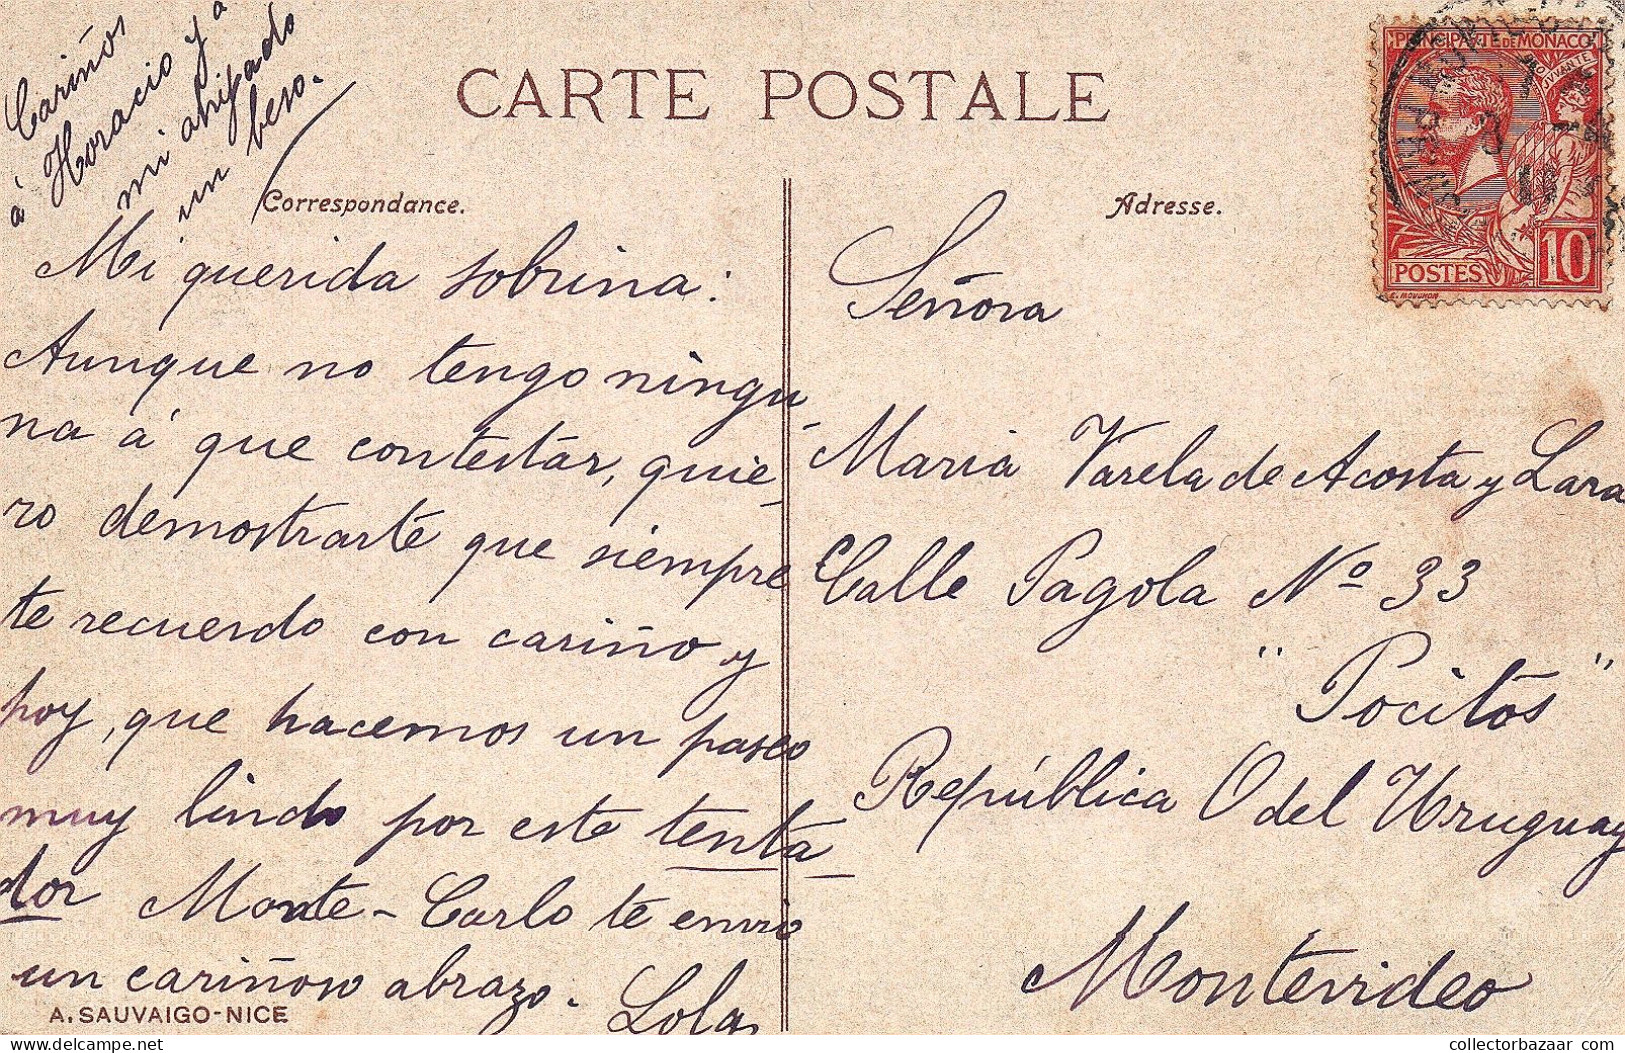 Cariños
á Horacio y á
mi ahijado
un beso.
CARTE POSTALE
Correspondance.
Adresse.
PRINCIPAUTÉ DE MONACO
POSTES 10
E. MOUCHON
Mi querida sobrina:
Aunque no tengo ningu-
na á que contestar, quie-
ro demostrarte que siempre
te recuerdo con cariño y
hoy, que hacemos un paseo
muy lindo por este tenta-
dor Monte-Carlo te envio
un cariñoso abrazo.
Lola
A. SAUVAIGO-NICE
Señora
Maria Varela de Acosta y Lara
Calle Pagola Nº 33
"Pocitos"
República O del Uruguay
Montevideo
collectorbazaar.com